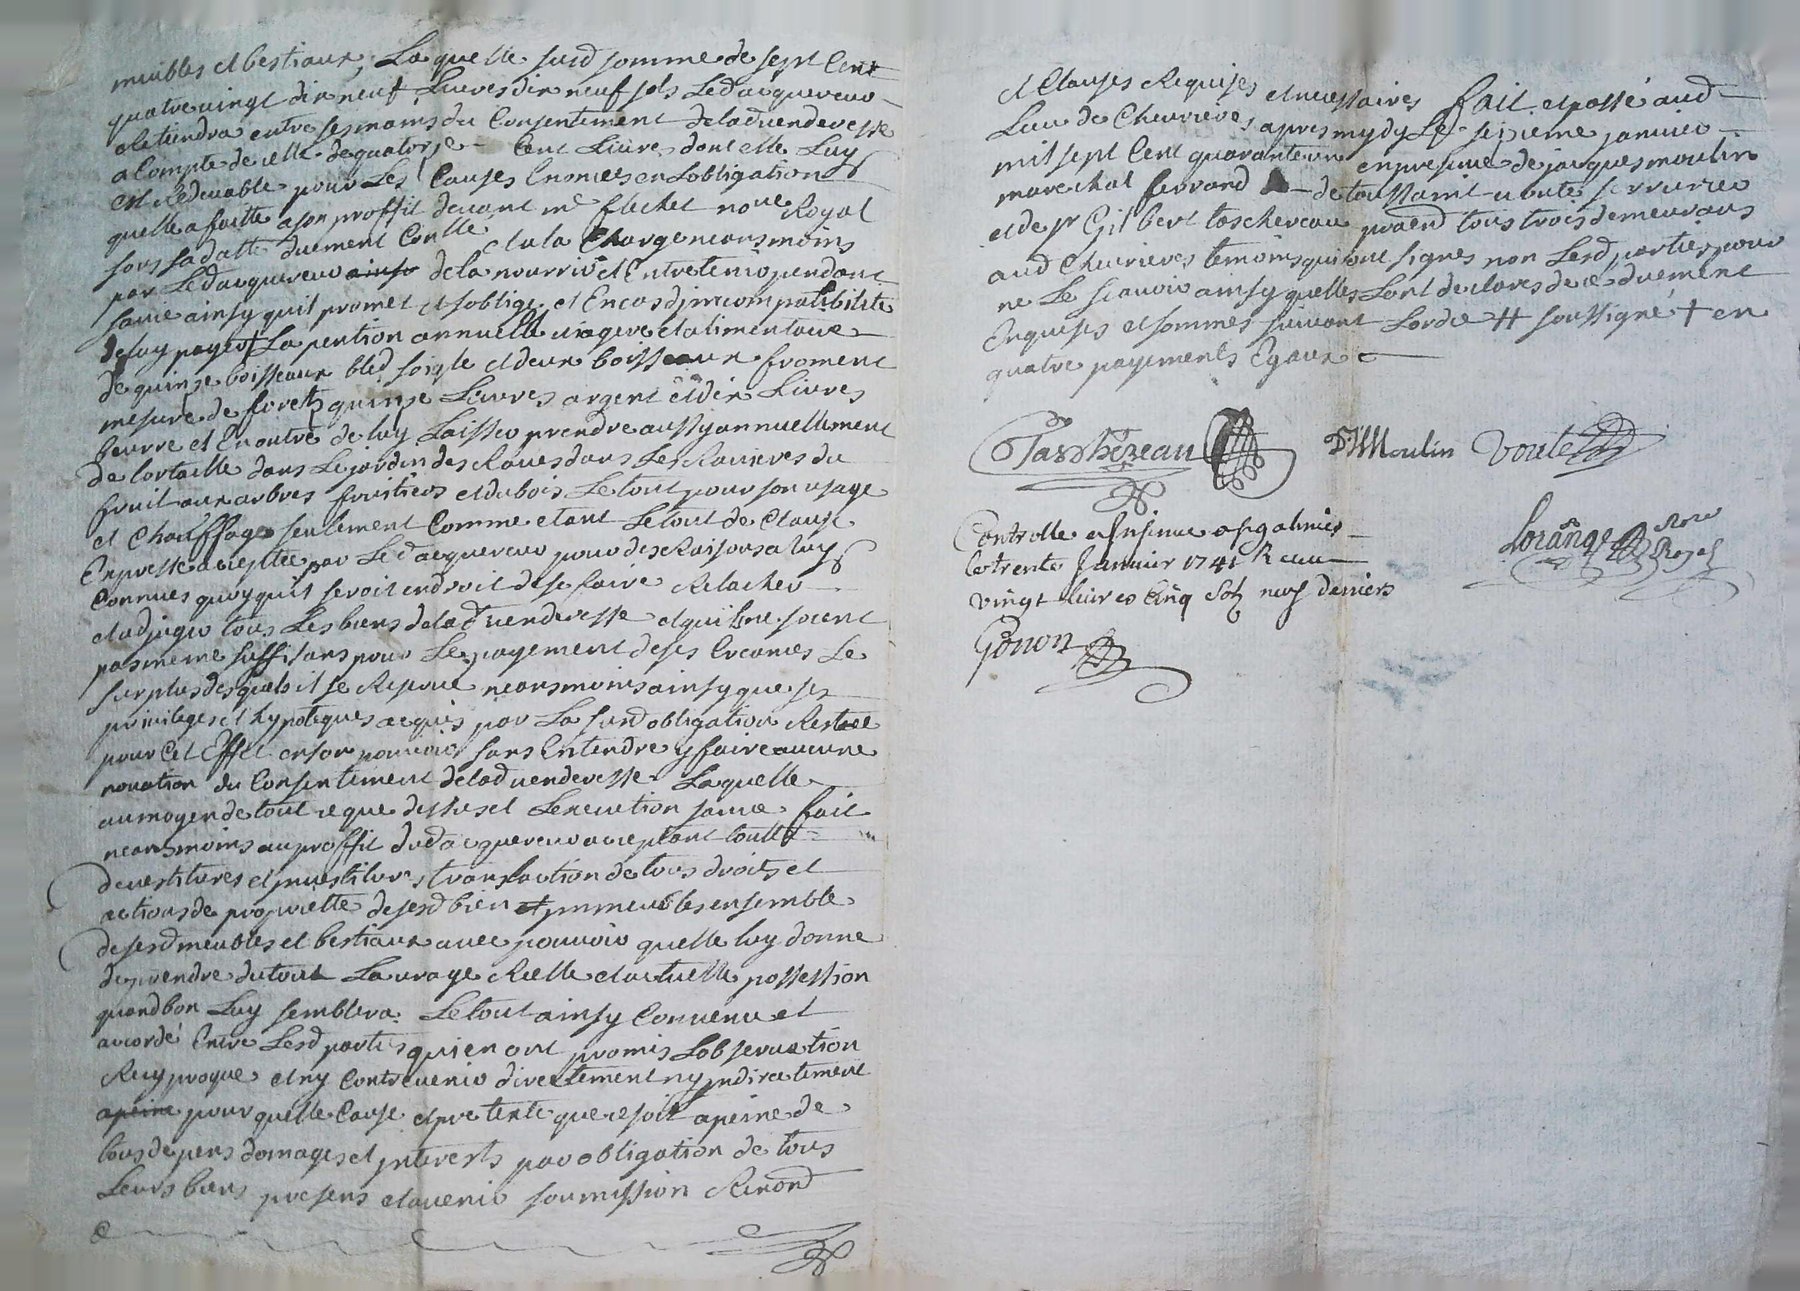 meubles et bestiaux, Laquelle susd somme de sept Cent
quatre vingt dix neuf Livres dix neuf sols Led acquereur
retiendra entre ses mains du Consentement delad venderesse
a Compte de celle de quatorze Cent Livres dont elle Luy
est redevable pour Les Causes Enoncées en Lobligation
quelle a faitte a son proffit devant me flachet nore Royal
sous sa datte duement Conllé et a la Charge neansmoins
par Led acquereur de la nourrir et Entretenir pendant
sa vie ainsy quil promet et soblige et En cas dincompatibilité
de luy payer + La pention annuelle viagere et alimentaire
de quinze boisseaux bled soigle et deux boisseaux froment
mesure de foretz quinze Livres argent et dix Livres
beurre et En outre de luy Laisser prendre aussy annuellement
de lortaille dans Le jardin des Raves dans Les Ravieres du
fruit aux arbres fruitiers et du bois Le tout pour son usage
et Chauffage seulement Comme etant Le tout de Clause
Expresse acceptée par Led acquereur pour des Raisons a luy
Connues quoyquil seroit en droit de se faire Relacher
et adjuger tous Les biens delad venderesse et quils ne soient
pas meme suffisans pour Le payement de ses Creances Le
surplus desquels il se Reserve neansmoins ainsy que ses
privileges et hypoteques acquis par La susd obligation Restée
pour Cet Effet en son pouvoir sans Entendre y faire aucune
novation du Consentement delad venderesse Laquelle
au moyen de tout ce que dessus et Lexecution fait
neansmoins au proffit dud acquereur acceptant toutte
devestitures et investitures translaction de tous droits et
actions de proprietté desesd bien immeubles ensemble
desesd meubles et bestiaux avec pouvoir quelle luy donne
de prendre du tout La vraye Réelle et actuelle possession
quand bon Luy semblera. Le tout ainsy Convenu et
accordé Entre Lesd parties qui en ont promis Lobservation
Reciproque et ny Contrevenir directement ny indirectement
pour quelle Cause et pretexte que ce soit a peine de
tous depens domages et interests par obligation de tous
Leurs biens presens et avenir soumission Renond
et Clauses Requises et necessaires fait et passé aud
Lieu de Chevrieres apres mydy Le seizieme janvier
mil sept Cent quarante un en presence de jacques moulin
marechal ferrand de toussaint voute serrurier
et de sr Gilbert taschereau tous trois demeurans
aud Chevrieres temoins qui ont signés non Lesd parties pour
ne Le scavoir ainsy quelles Lont declarés de ce duement
Enquises et sommés suivant Lordce # soussigné + en
quatre payements Egaux
Taschereau
Moulin
Voute
Controllé et Insinué a st galmier
Le trente Janvier 1741 Receu
vingt livres Cinq Sols neuf deniers
Gonon
Lorange Nore Royal